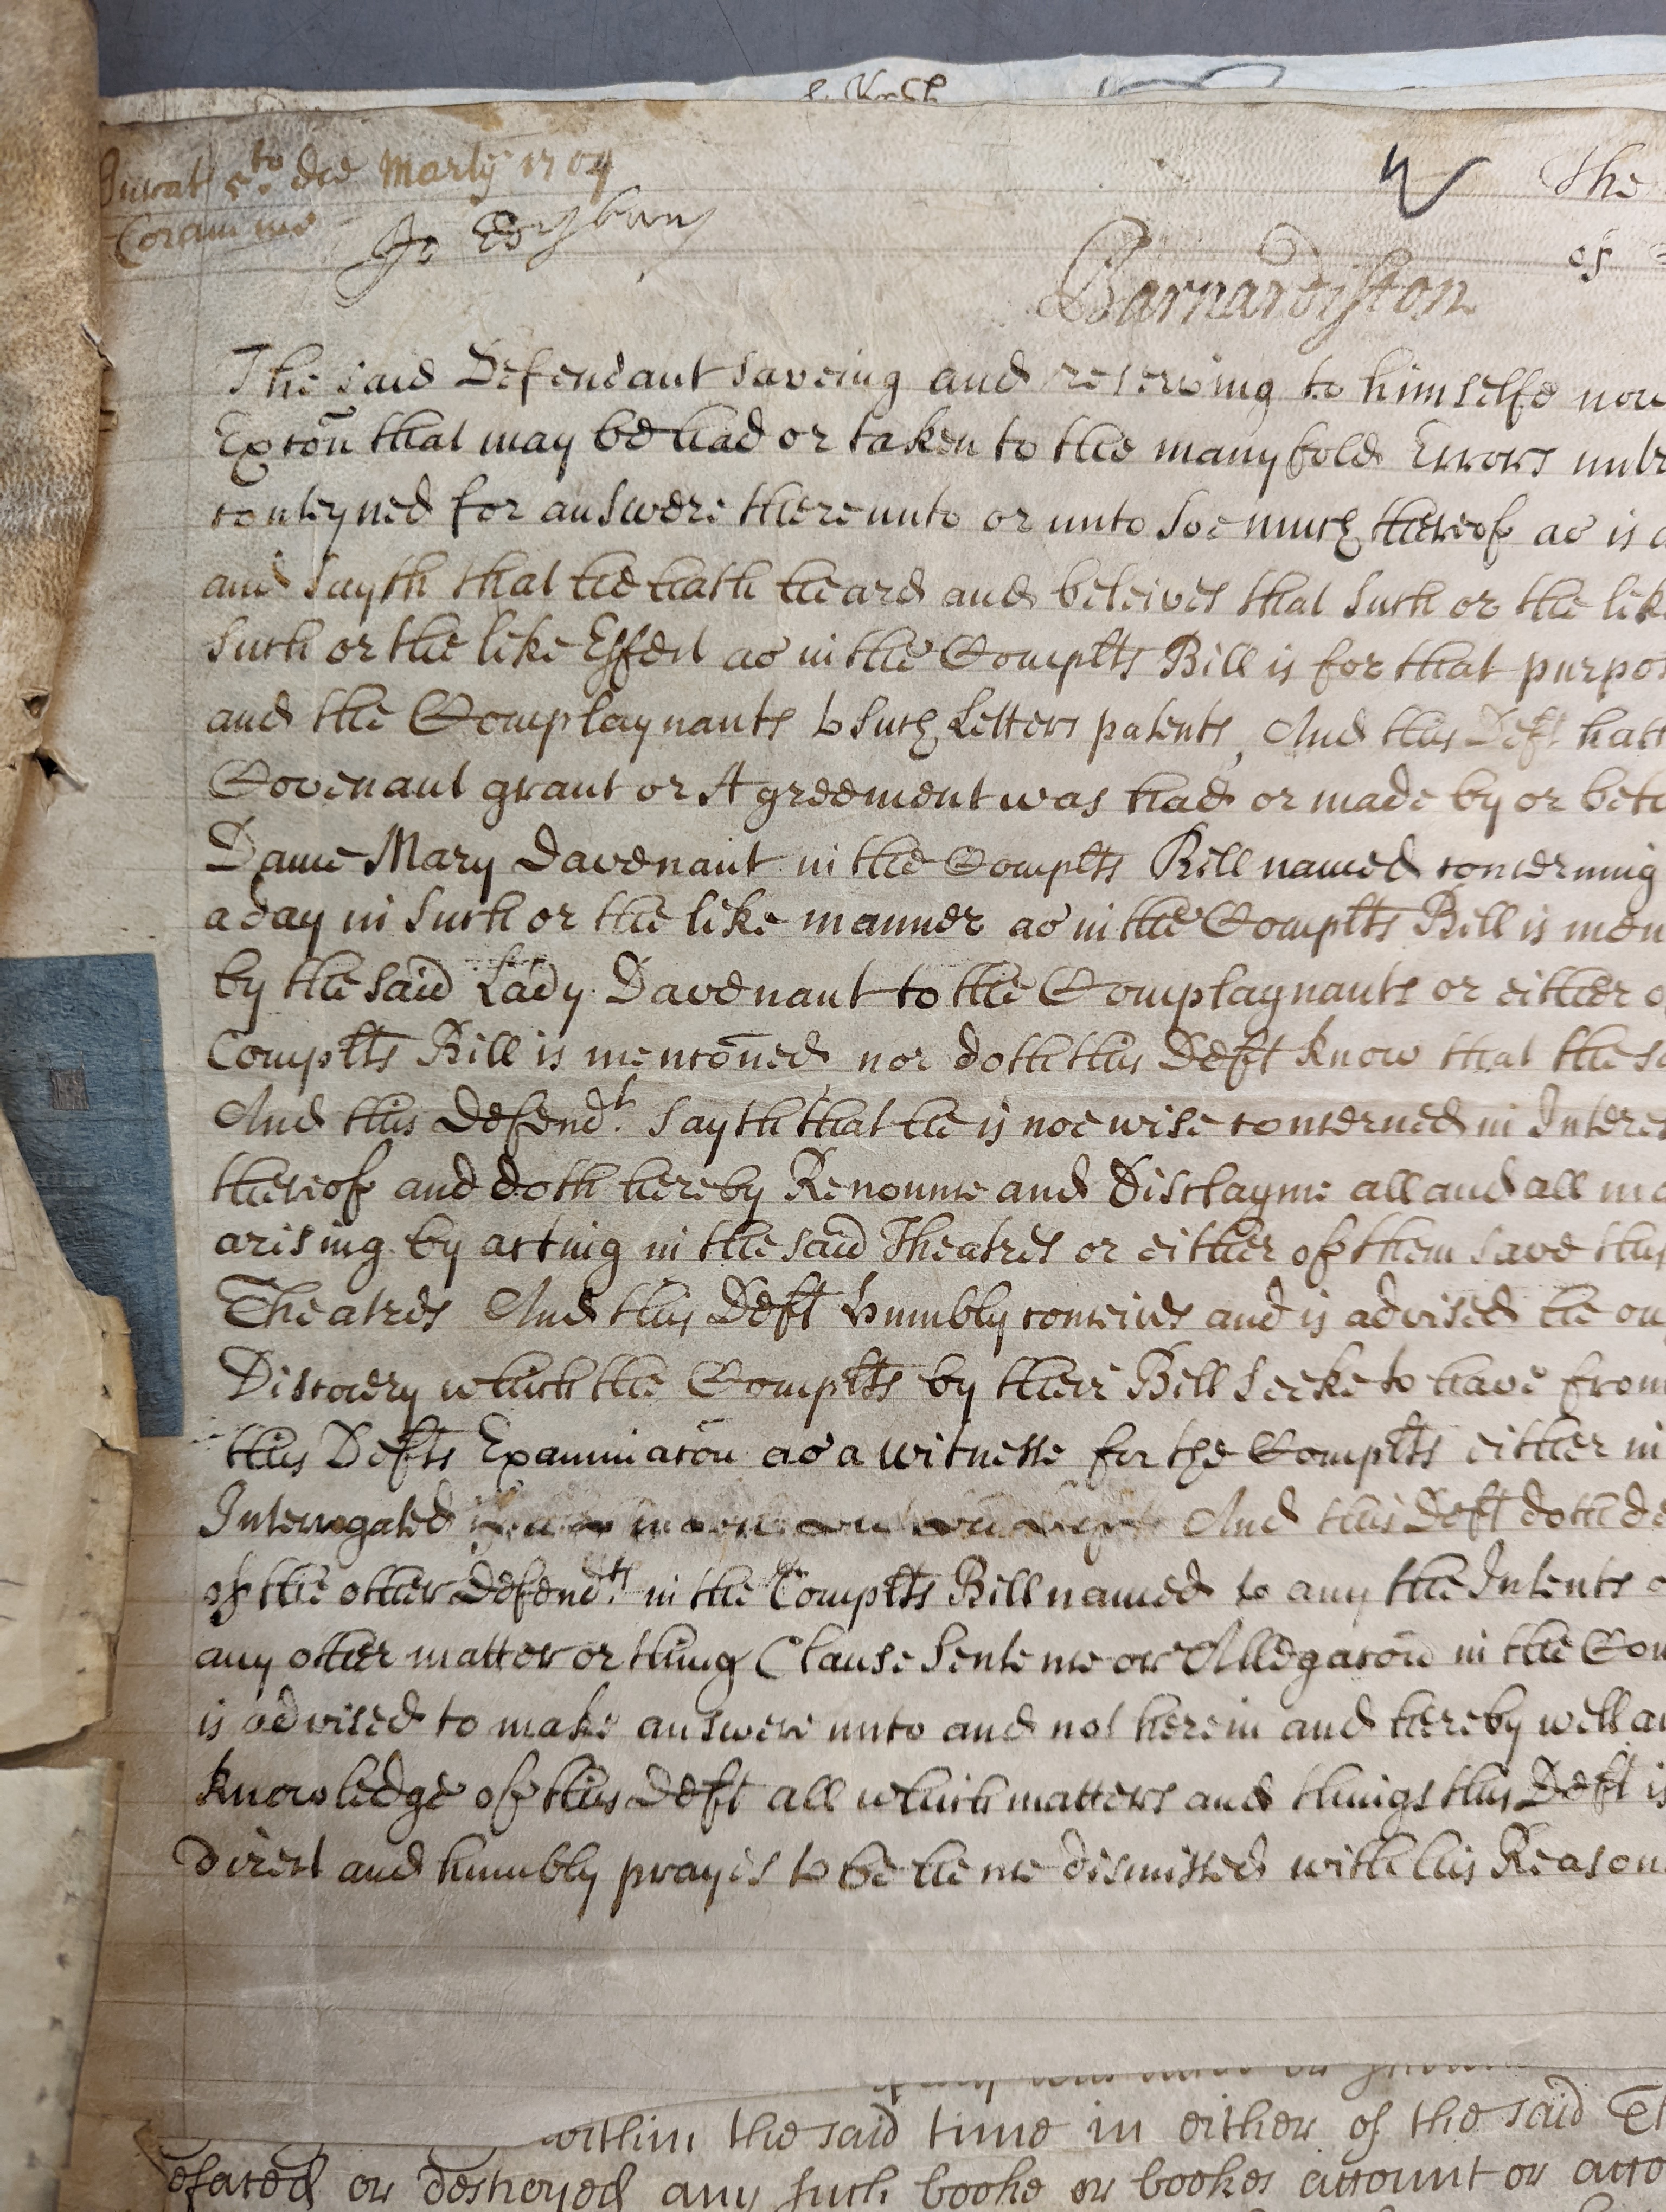 Jurat 5to die Martij 1704
Coram me Jo Edisbury
The
of
Barnardiston
The said Defendant saveing and reserving to himselfe now
Expcōn that may be had or taken to the manyfold Errors
conteyned for answere thereunto or unto soe much thereof as is
and sayth that he hath heard and beleives that such or the like
such or the like Effect as in the Complts Bill is for that purpos
and the Complaynants to such Letters patents, And this Deft hath
Covenant grant or Agreement was had or made by or betw
Dame Mary Davenant in the Complts Bill named concerning
a day in such or the like manner as in the Complts Bill is men
by the said Lady Davenant to the Complaynants or either o
Complts Bill is mencōned nor doth this Deft know that the s
And this Defendt. sayth that he is noe wise concerned in Interes
thereof and doth hereby Renounce and Disclayme all and all ma
arising by acting in the said Theatres or either of them save this
Theatres And this Deft humbly conceives and is advised he ou
Discovery which the Complts by their Bill seeke to have from
this Defts Examinacōn as a witnesse for the Complts either in
Interrogated And this Deft doth de
of the other Defendts. in the Complts Bill named to any the Intents
any other matter or thing Clause Sentence or Allegacōn in the Com
is advised to make answere unto and not herein and hereby well an
knowledge of this Deft all which matters and things this Deft is
direct and humbly prayes to be hence dismissed with his Reason
within the said time in either of the said Th
efaced or destroyed any such booke or bookes account or acco